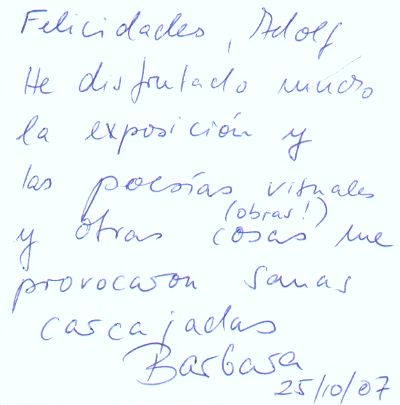 Felicidades, Adolf
He disfrutado mucho
la exposición y
las poesías visuales
(obras!)
y otras cosas me
provocaron sanas
carcajadas
Barbara
25/10/07